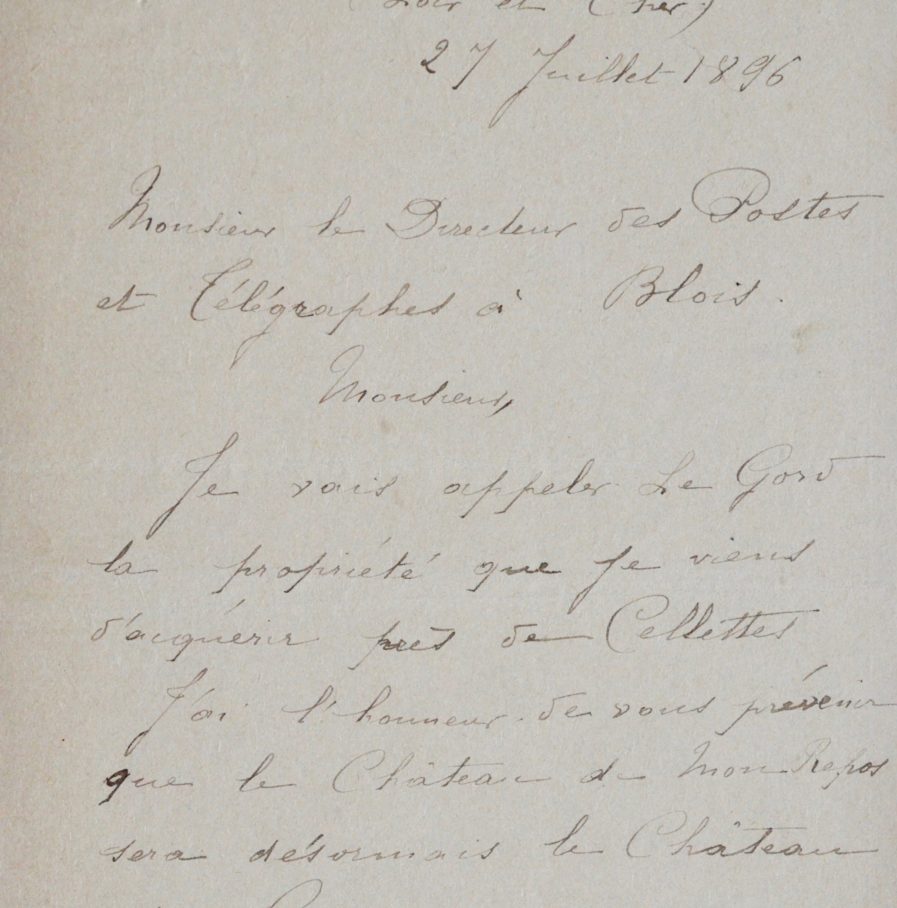 (Loir et Cher)
27 Juillet 1896
Monsieur le Directeur des Postes
et Télégraphes à Blois.
Monsieur,
Je vais appeler Le Gord
la propriété que je viens
d'acquérir près de Cellettes
J'ai l'honneur de vous prévenir
que le Château de Mon Repos
sera désormais le Château